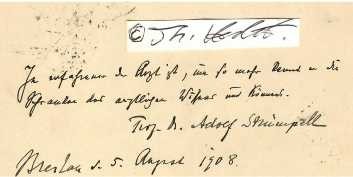 © Th. Vedt.
Je erfahrener der Arzt ist, um so mehr kennt er die
Schranken des ärztlichen Wissens und Könnens.
Prof. Dr. Adolf Strümpell
Breslau d. 5. August 1908.